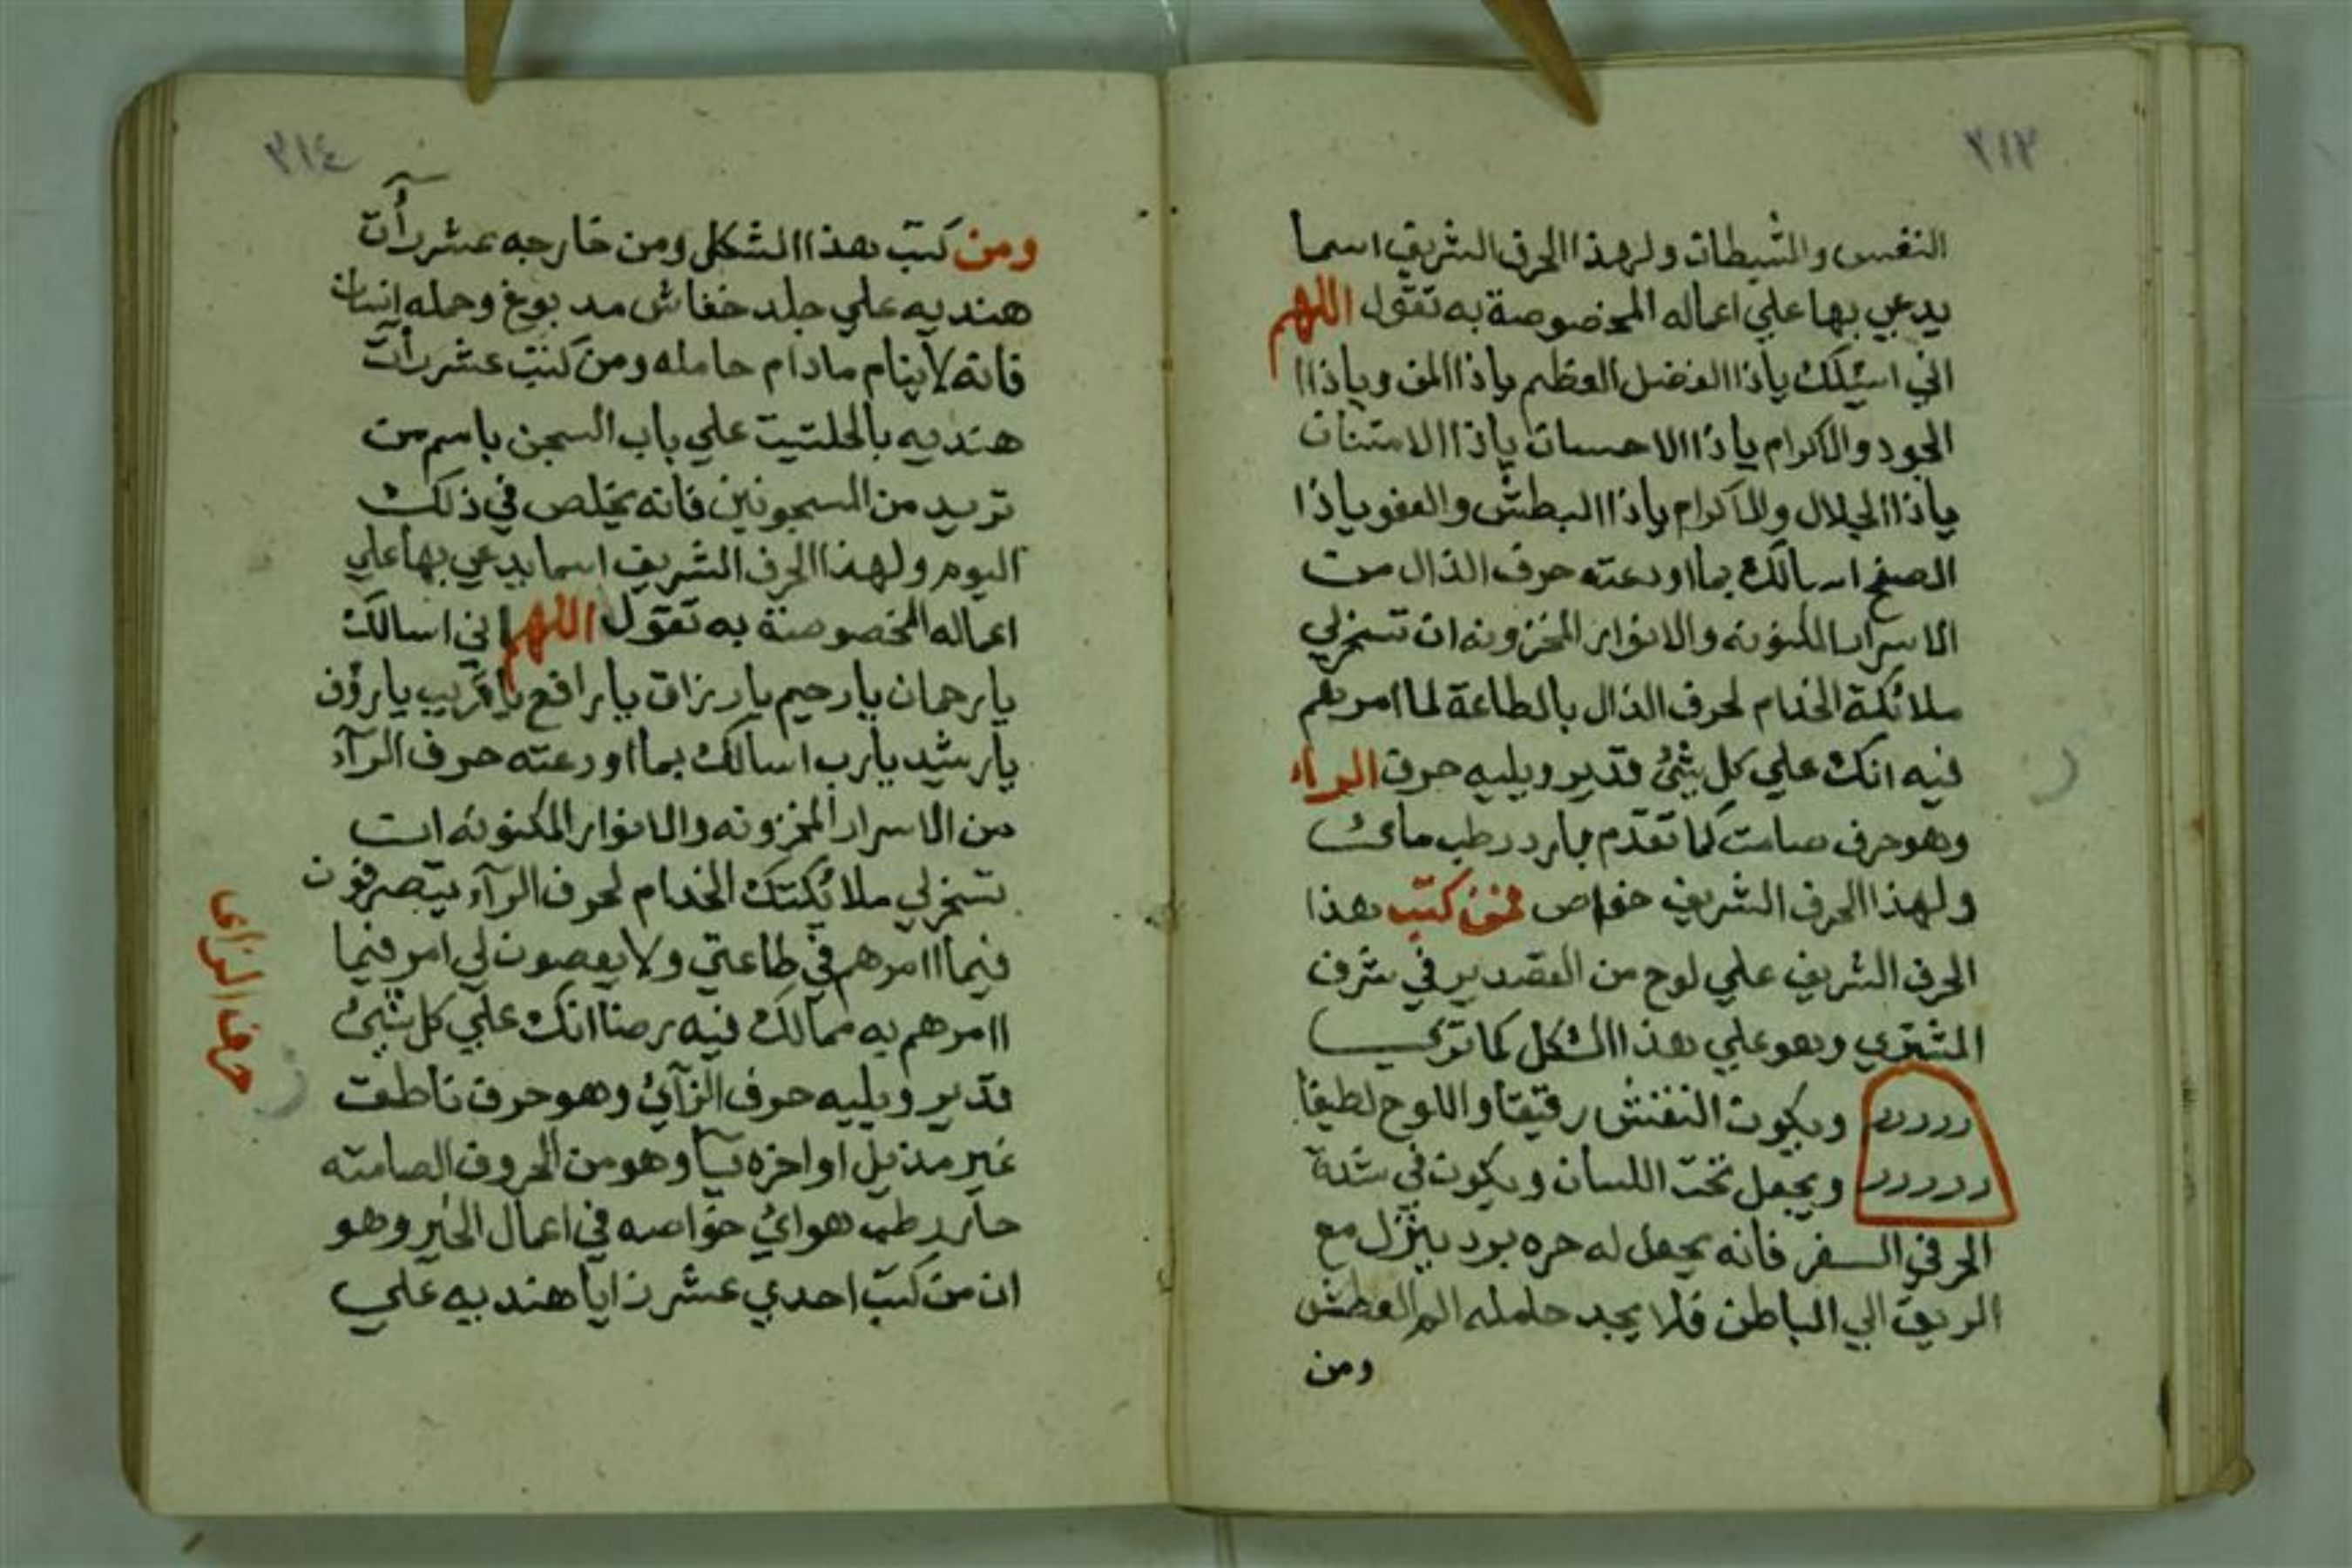 ٣١٣
النفس والشيطان ولهذا الحرف الشريف اسما
يدعي بها علي اعماله المخصوصة به تقول اللهم
اني اسئلك ياذا الفضل العظيم ياذا المن وياذا ا
الجود والاكرام ياذا الاحسان ياذا الامتنان
ياذا الجلال والاكرام ياذا البطش والعفو ياذا
الصفح اسالك بما اودعته حرف الذال من
الاسرار المكنونه والانوار المخزونه ان تسخرلي
ملائكة الخدام لحرف الذال بالطاعة لما امرهم
فيه انك علي كل شئ قدير ويليه حرف الرآء
ر
وهو حرف صامت كما تقدم بارد رطب مائ
ولهذا الحرف الشريف خواص فمن كتب هذا
الحرف الشريف علي لوح من القصدير في شرف
المشتري وهو علي هذا الشكل كما تري
ررررر ويكون النقش رقيقا واللوح لطيفا
ررررر ويجعل تحت اللسان ويكون في شدة
الحر في السفر فانه يجعل له حره برد ينزل مع
الريق الي الباطن فلا يجد حامله الم العطش
ومن
٣١٤
ومن كتب هذا الشكل ومن خارجه عشر رأآت
هنديه علي جلد خفاش مدبوغ وحمله انسان
فانه لاينام مادام حامله ومن كتب عشر رأآت
هنديه بالحلتيت علي باب السجن باسم من
تريد من المسجونين فانه يخلص في ذلك
اليوم ولهذا الحرف الشريف اسما يدعي بها علي
اعماله المخصوصة به تقول اللهم اني اسالك
يارحمان يارحيم يارزاق يارافع ياقريب يارؤف
يارشيد يارب اسالك بما اودعته حرف الرآء
من الاسرار المخزونه والانوار المكنونه ان
تسخرلي ملائكتك الخدام لحرف الرآء يتصرفون
فيما اامرهم في طاعتي ولا يعصون لي امر فيما
اامرهم به ممالك فيه رضا انك علي كل شيئ
قدير ويليه حرف الزآئ وهو حرف ناطق
ز
حرف الزاى
غير مذيل او اخره يآ وهو من الحروف الصامته
حار رطب هوائ خواصه في اعمال الخير وهو
ان من كتب احدي عشر زايا هنديه علي